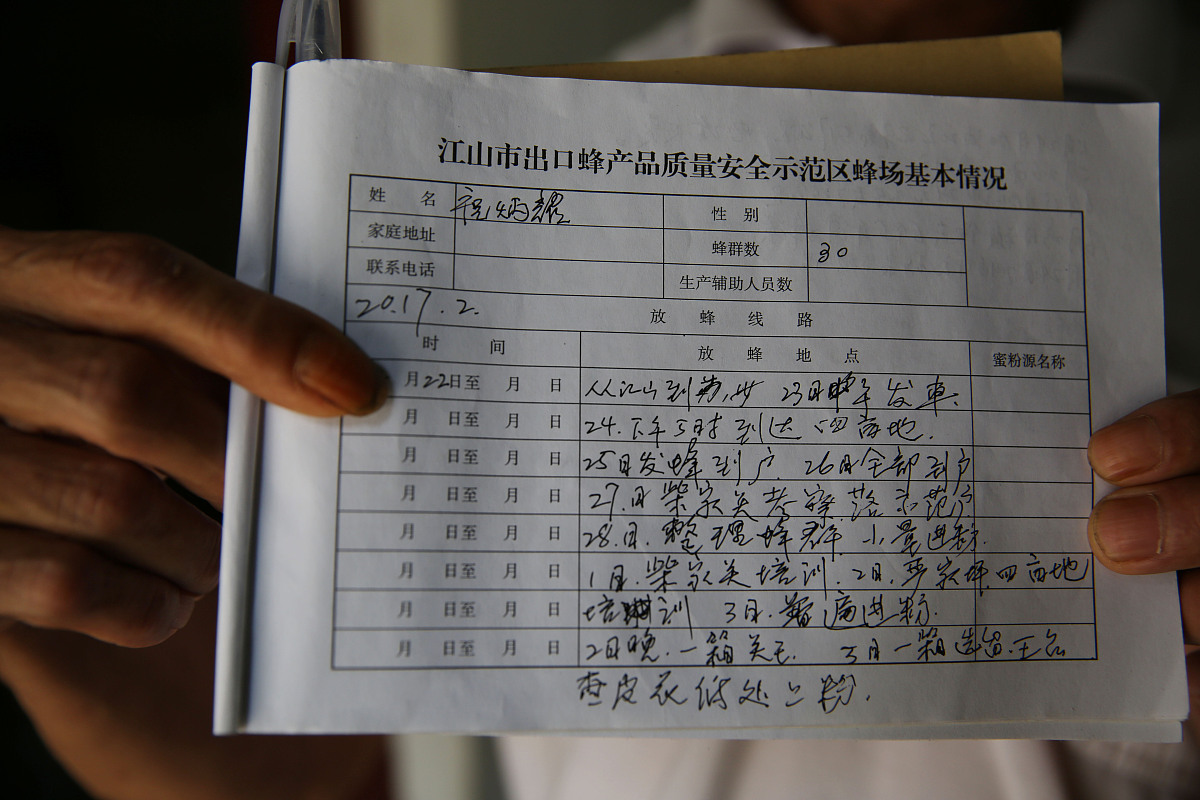 江山市出口蜂产品质量安全示范区蜂场基本情况
姓 名 炳耀 性 别
家庭地址 蜂群数 30
联系电话 生产辅助人员数
2017.2. 放 蜂 线 路
时 间 放 蜂 地 点 蜜粉源名称
月22日至 月 日 从江山到 23日 发车.
月 日至 月 日 24.下午5时到达四亩地.
月 日至 月 日 25日发蜂到户 26日全部到户
月 日至 月 日 27.日柴家关考察.落示范户
月 日至 月 日 28.日.整理蜂群.小量进粉.
月 日至 月 日 1日.柴家关培训.2日.严家坪.四亩地
月 日至 月 日 培训 3日.普遍进粉.
月 日至 月 日 2日晚.一箱关王. 5日一箱 王台